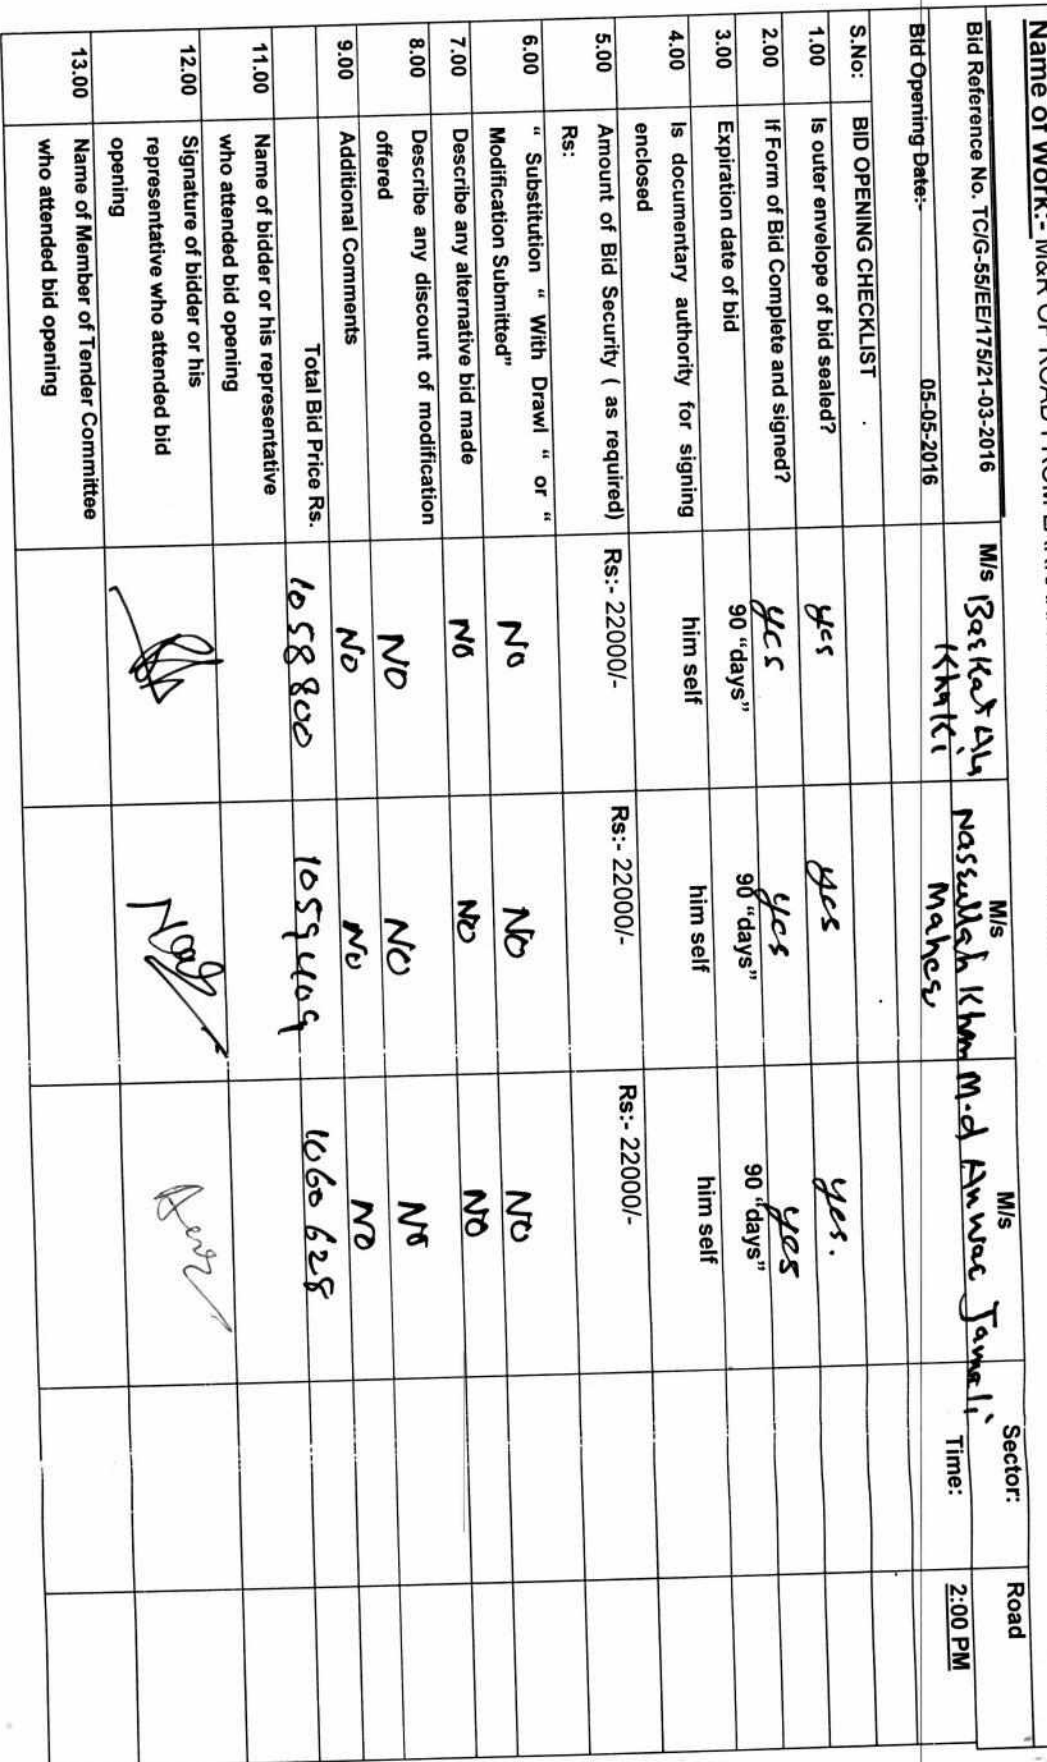 Name of Work:- M&R OF ROAD FROM
Sector: Road
Bid Reference No. TC/G-55/EE/175/21-03-2016 M/s Barkat Ali Khalti M/s Nasrullah Khan Maher M/s M.d Anwar Jamali Time: 2:00 PM
Bid Opening Date:- 05-05-2016
S.No: BID OPENING CHECKLIST
1.00 Is outer envelope of bid sealed? yes yes yes.
2.00 If Form of Bid Complete and signed? yes yes yes
3.00 Expiration date of bid 90 "days" 90 "days" 90 "days"
4.00 Is documentary authority for signing him self him self him self
enclosed
5.00 Amount of Bid Security ( as required) Rs:- 22000/- Rs:- 22000/- Rs:- 22000/-
Rs:
6.00 " Substitution " With Drawl " or " NO NO NO
Modification Submitted"
7.00 Describe any alternative bid made NO NO NO
8.00 Describe any discount of modification NO NO NO
offered
9.00 Additional Comments NO NO NO
Total Bid Price Rs. 1058800 1059409 1060628
11.00 Name of bidder or his representative
who attended bid opening
12.00 Signature of bidder or his
representative who attended bid
opening
13.00 Name of Member of Tender Committee
who attended bid opening